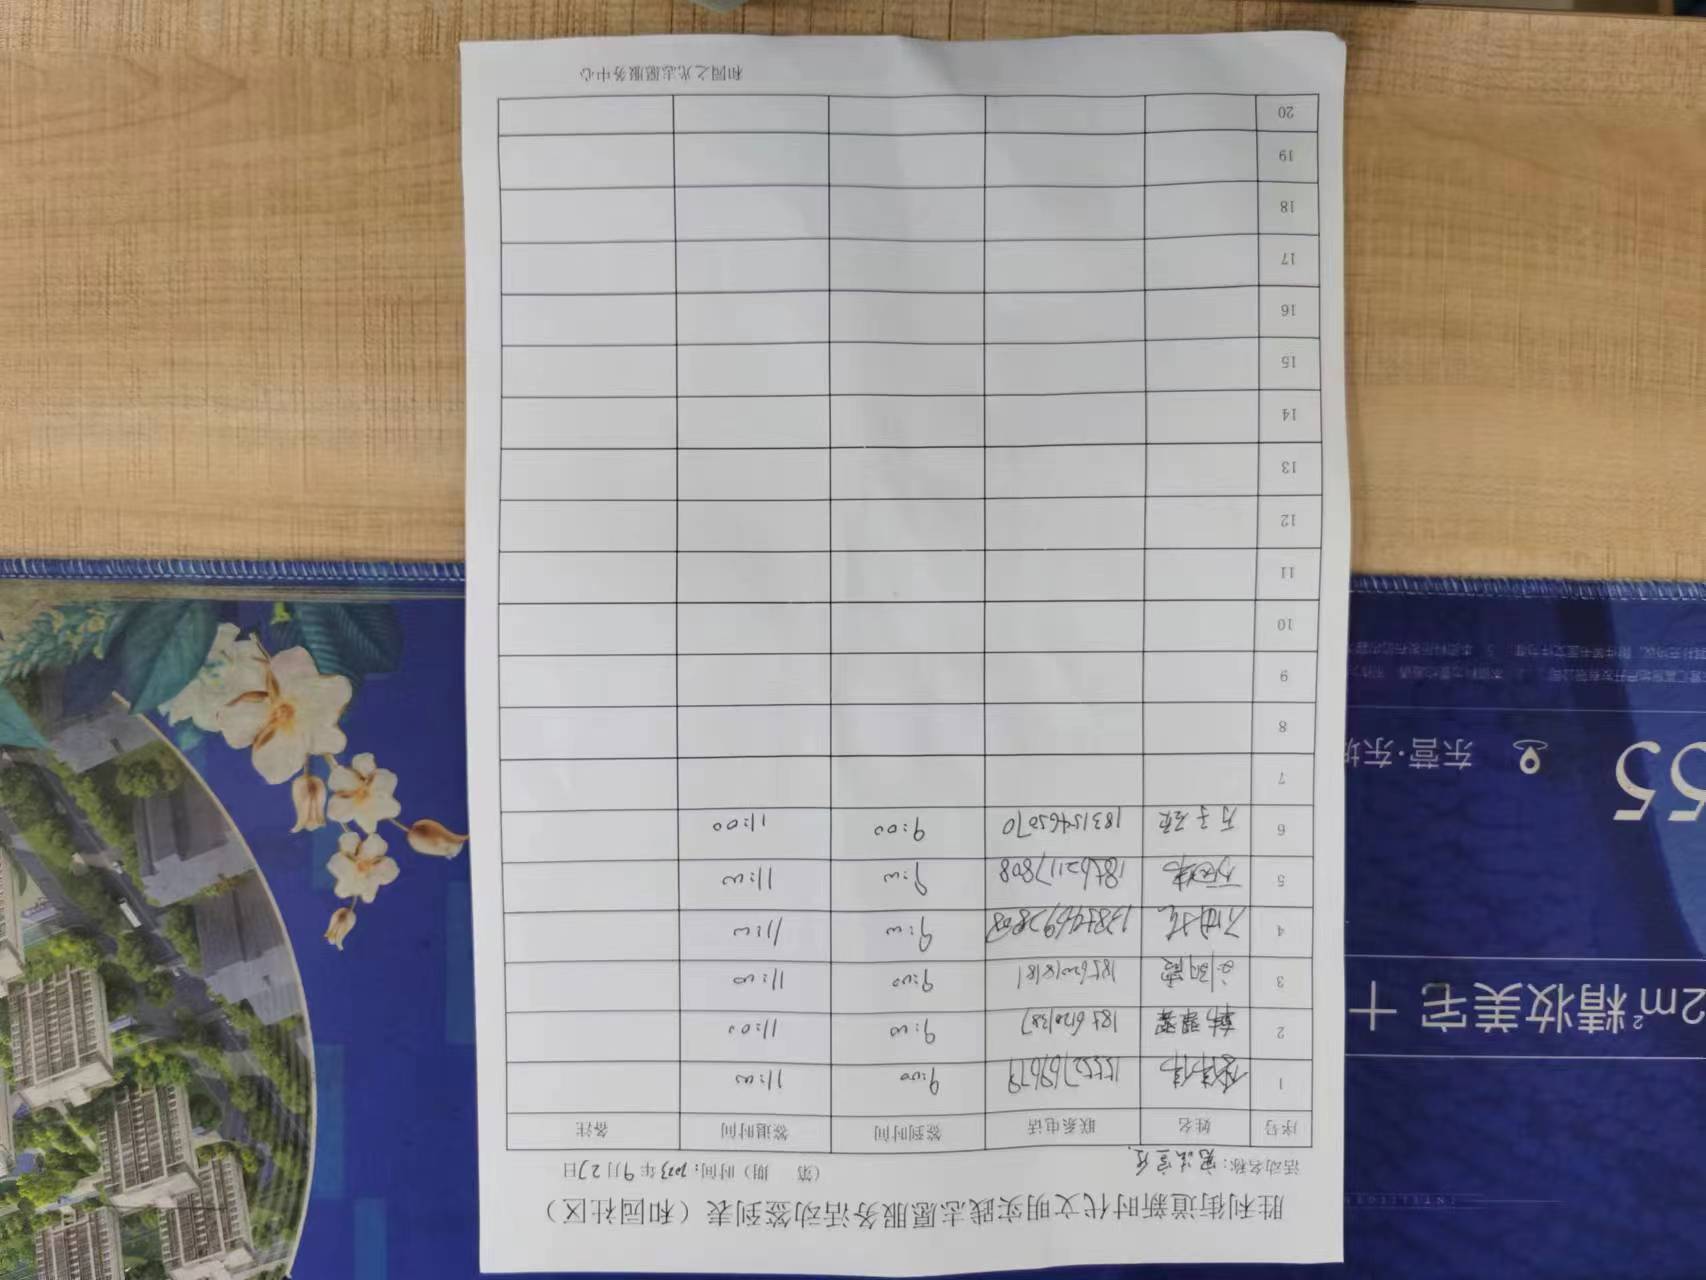 胜利街道新时代文明实践志愿服务活动签到表（和园社区）
活动名称：宪法宣传 （第 期）时间：2023年9月27日
序号 姓名 联系电话 签到时间 签退时间 备注
1 15552769679 9:00 11:00
2 韩翠翠 18561201387 9:00 11:00
3 9:00 11:00
4 9:00 11:00
5 18562117808 9:00 11:00
6 18315465070 9:00 11:00
7
8
9
10
11
12
13
14
15
16
17
18
19
20
和园之光志愿服务中心
55
东营·东城
2m²精妆美宅 十